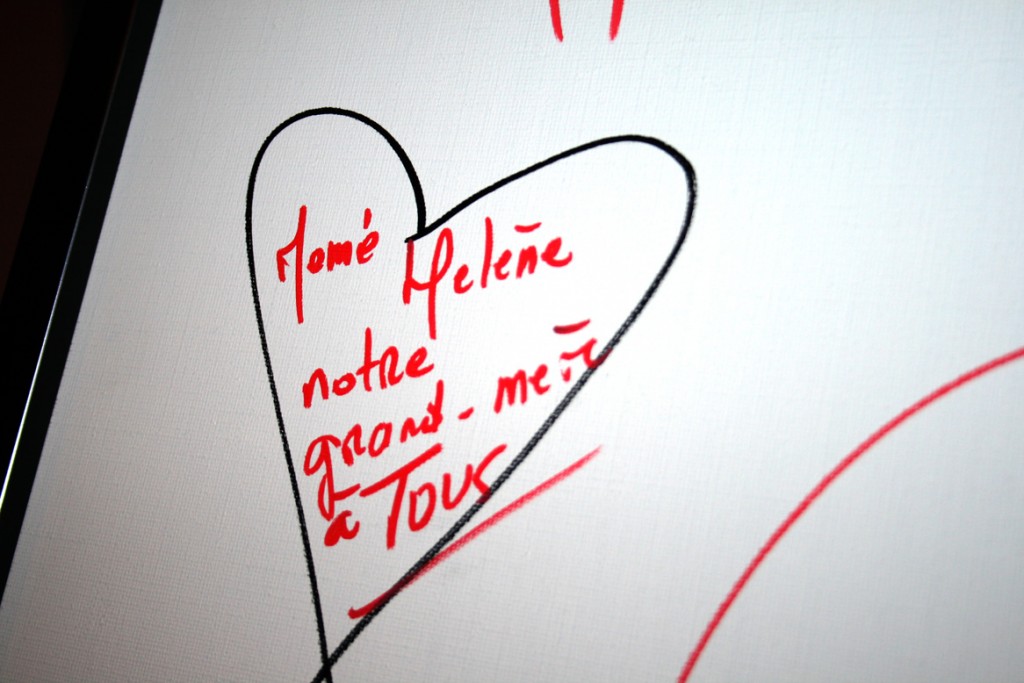 Memé Helène
notre
grand-mère
à TOUS